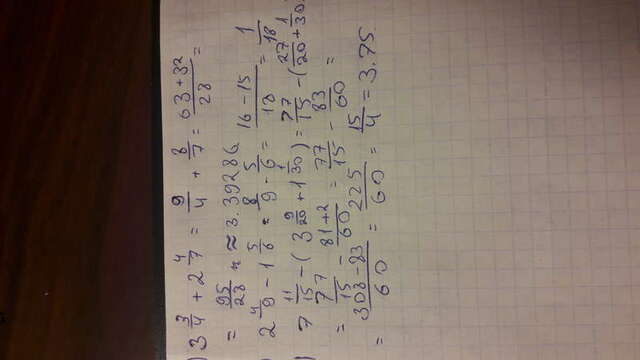 ) 3 3/4 + 2 4/7 = 9/4 + 8/7 = (63+32)/28 =
= 95/28 ≈ ≈ 3.39286
2 4/9 - 1 5/6 = 8/9 - 5/6 = (16-15)/18 = 1/18
) 7 11/15 - (3 9/20 + 1 1/30) = 77/15 - (27/20 + 1/30)
= 77/15 - (81+2)/60 = 77/15 - 83/60 =
= (308-83)/60 = 225/60 = 15/4 = 3.75.